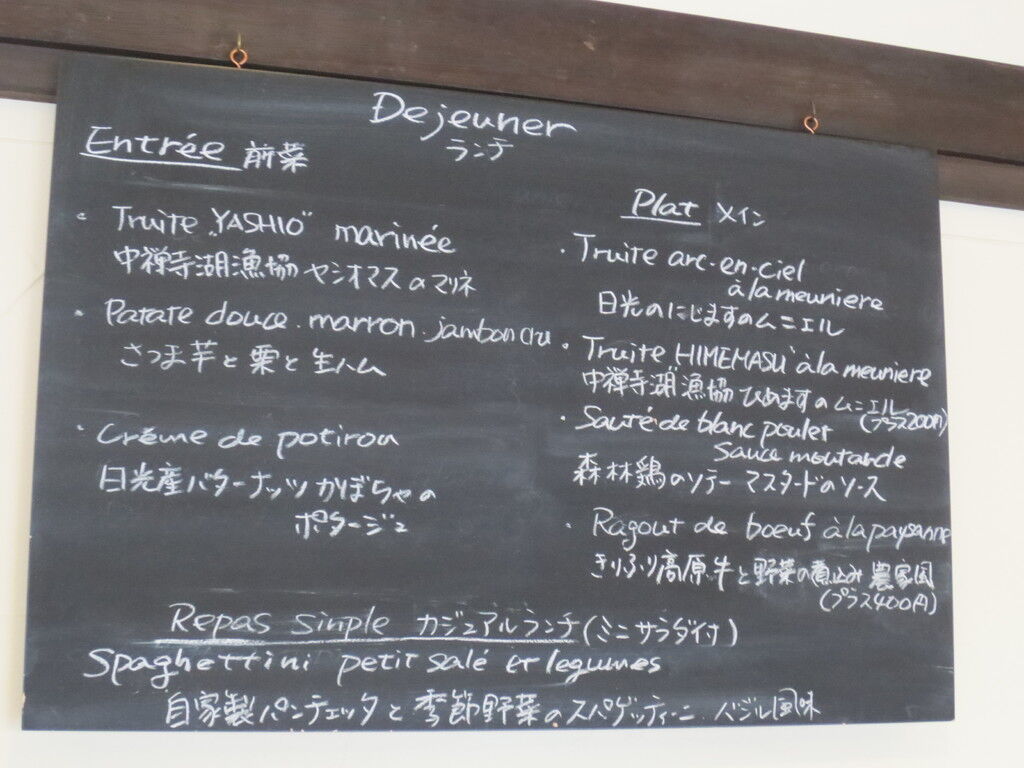 Dejeuner
ランチ
Entrée 前菜
・Truite "YASHIO" marinée
中禅寺湖漁協 ヤシオマスのマリネ
・Patate douce.marron.jambon cru
さつま芋と栗と生ハム
・Créme de potiron
日光産バターナッツかぼちゃの
ポタージュ
Plat メイン
・Truite arc-en-ciel
à la meuniere
日光のにじますのムニエル
・Truite "HIMEMASU" à la meuniere
中禅寺湖漁協 ひめますのムニエル
(プラス200円)
・Sauté de blanc poulet
Sauce moutarde
森林鶏のソテー マスタードのソース
・Ragout de boeuf à la paysanne
きりふり高原牛と野菜の煮込み 農家風
(プラス400円)
Repas simple カジュアルランチ(ミニサラダ付)
Spaghettini petit salé et legumes
自家製パンチェッタと季節野菜のスパゲッティーニ バジル風味